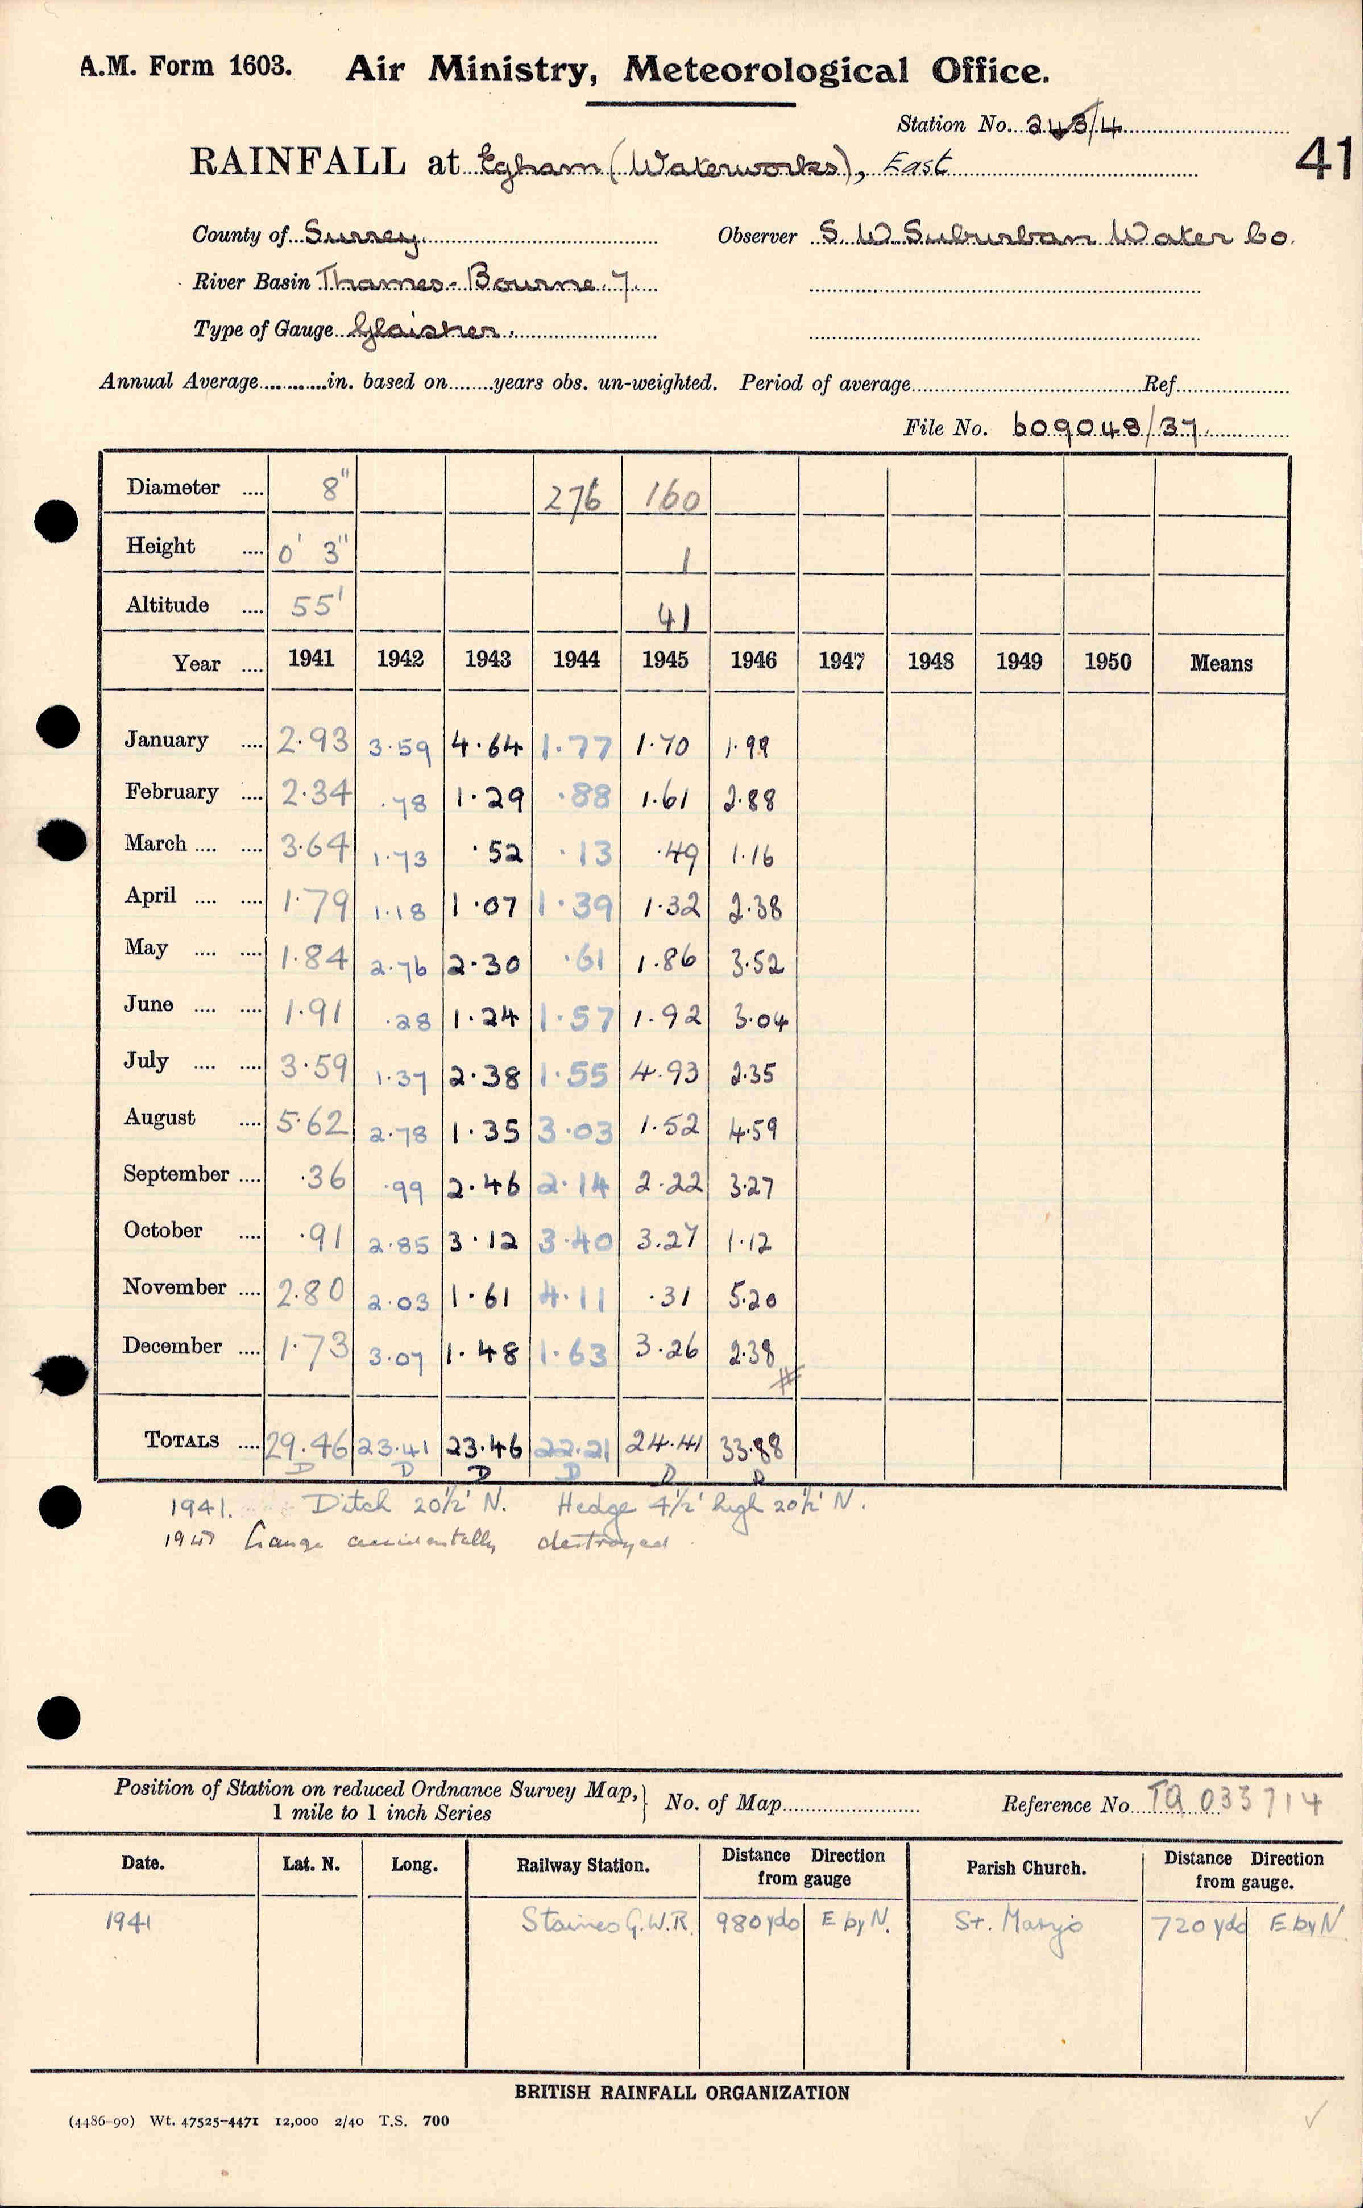 A.M. Form 1603. Air Ministry, Meteorological Office.
Station No. 243/4
41
RAINFALL at Egham (Waterworks), East
County of Surrey. Observer S. W. Suburban Water Co.
River Basin Thames-Bourne. 7.
Type of Gauge Glaisher.
Annual Average............in. based on........years obs. un-weighted. Period of average........Ref........
File No. 609048/37.
Diameter .... 8" 276 160
Height .... 0' 3" 1
Altitude .... 55' 41
Year .... 1941 1942 1943 1944 1945 1946 1947 1948 1949 1950 Means
January .... 2.93 3.59 4.64 1.77 1.70 1.99
February .... 2.34 .78 1.29 .88 1.61 2.88
March .... .... 3.64 1.73 .52 .13 .49 1.16
April .... .... 1.79 1.18 1.07 1.39 1.32 2.38
May .... .... 1.84 2.76 2.30 .61 1.86 3.52
June .... .... 1.91 .28 1.24 1.57 1.92 3.04
July .... .... 3.59 1.37 2.38 1.55 4.93 2.35
August .... 5.62 2.78 1.35 3.03 1.52 4.59
September .... .36 .99 2.46 2.14 2.22 3.27
October .... .91 2.85 3.12 3.40 3.27 1.12
November .... 2.80 2.03 1.61 4.11 .31 5.20
December .... 1.73 3.07 1.48 1.63 3.26 2.38
#
TOTALS .... 29.46 23.41 23.46 22.21 24.41 33.88
D D D D D D
1941. Ditch 20½' N. Hedge 4½' high 20½' N.
1947 Gauge accidentally destroyed.
Position of Station on reduced Ordnance Survey Map, 1 mile to 1 inch Series } No. of Map........ Reference No. TQ 033714
Date. Lat. N. Long. Railway Station. Distance Direction from gauge Parish Church. Distance Direction from gauge.
1941 Staines G.W.R. 980 yds E by N. St. Mary's 720 yds E by N
BRITISH RAINFALL ORGANIZATION
(4486-90) Wt. 47525-4471 12,000 2/40 T.S. 700